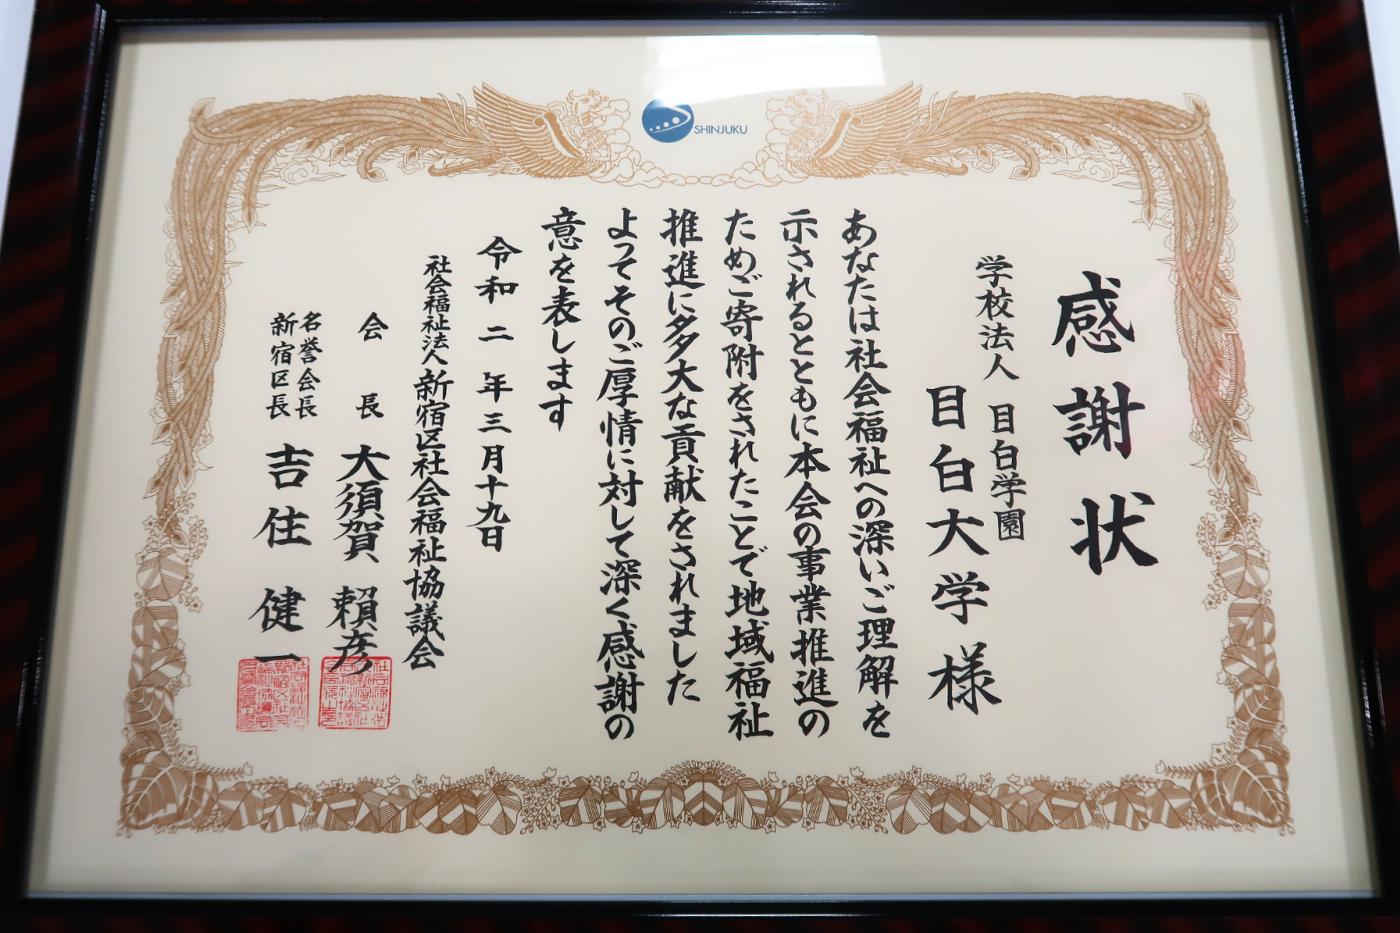 SHINJUKU
感謝状
学校法人 目白学園
目白大学様
あなたは社会福祉への深いご理解を
示されるとともに本会の事業推進の
ためご寄附をされたことで地域福祉
推進に多大な貢献をされました
よってそのご厚情に対して深く感謝の
意を表します
令和二年三月十九日
社会福祉法人新宿区社会福祉協議会
会長 大須賀 頼彦
名誉会長
新宿区長 吉住 健一